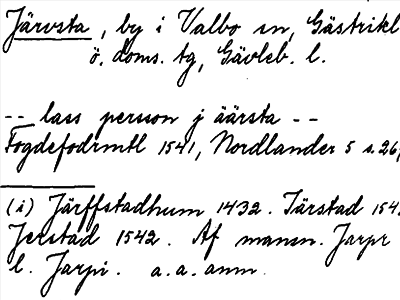 Järvsta, by i Valbo sn, Gästrikl
ö. doms. tg, Gävleb. l.
-- lass persson j äärsta --
Fogdefodrmtl 1541, Nordlander 5 s. 26,
(i) Järffstadhum 1432. Järstad 154.
Jerstad 1542. Af mansn. Jarpr
l. Jarpi. a.a. anm.